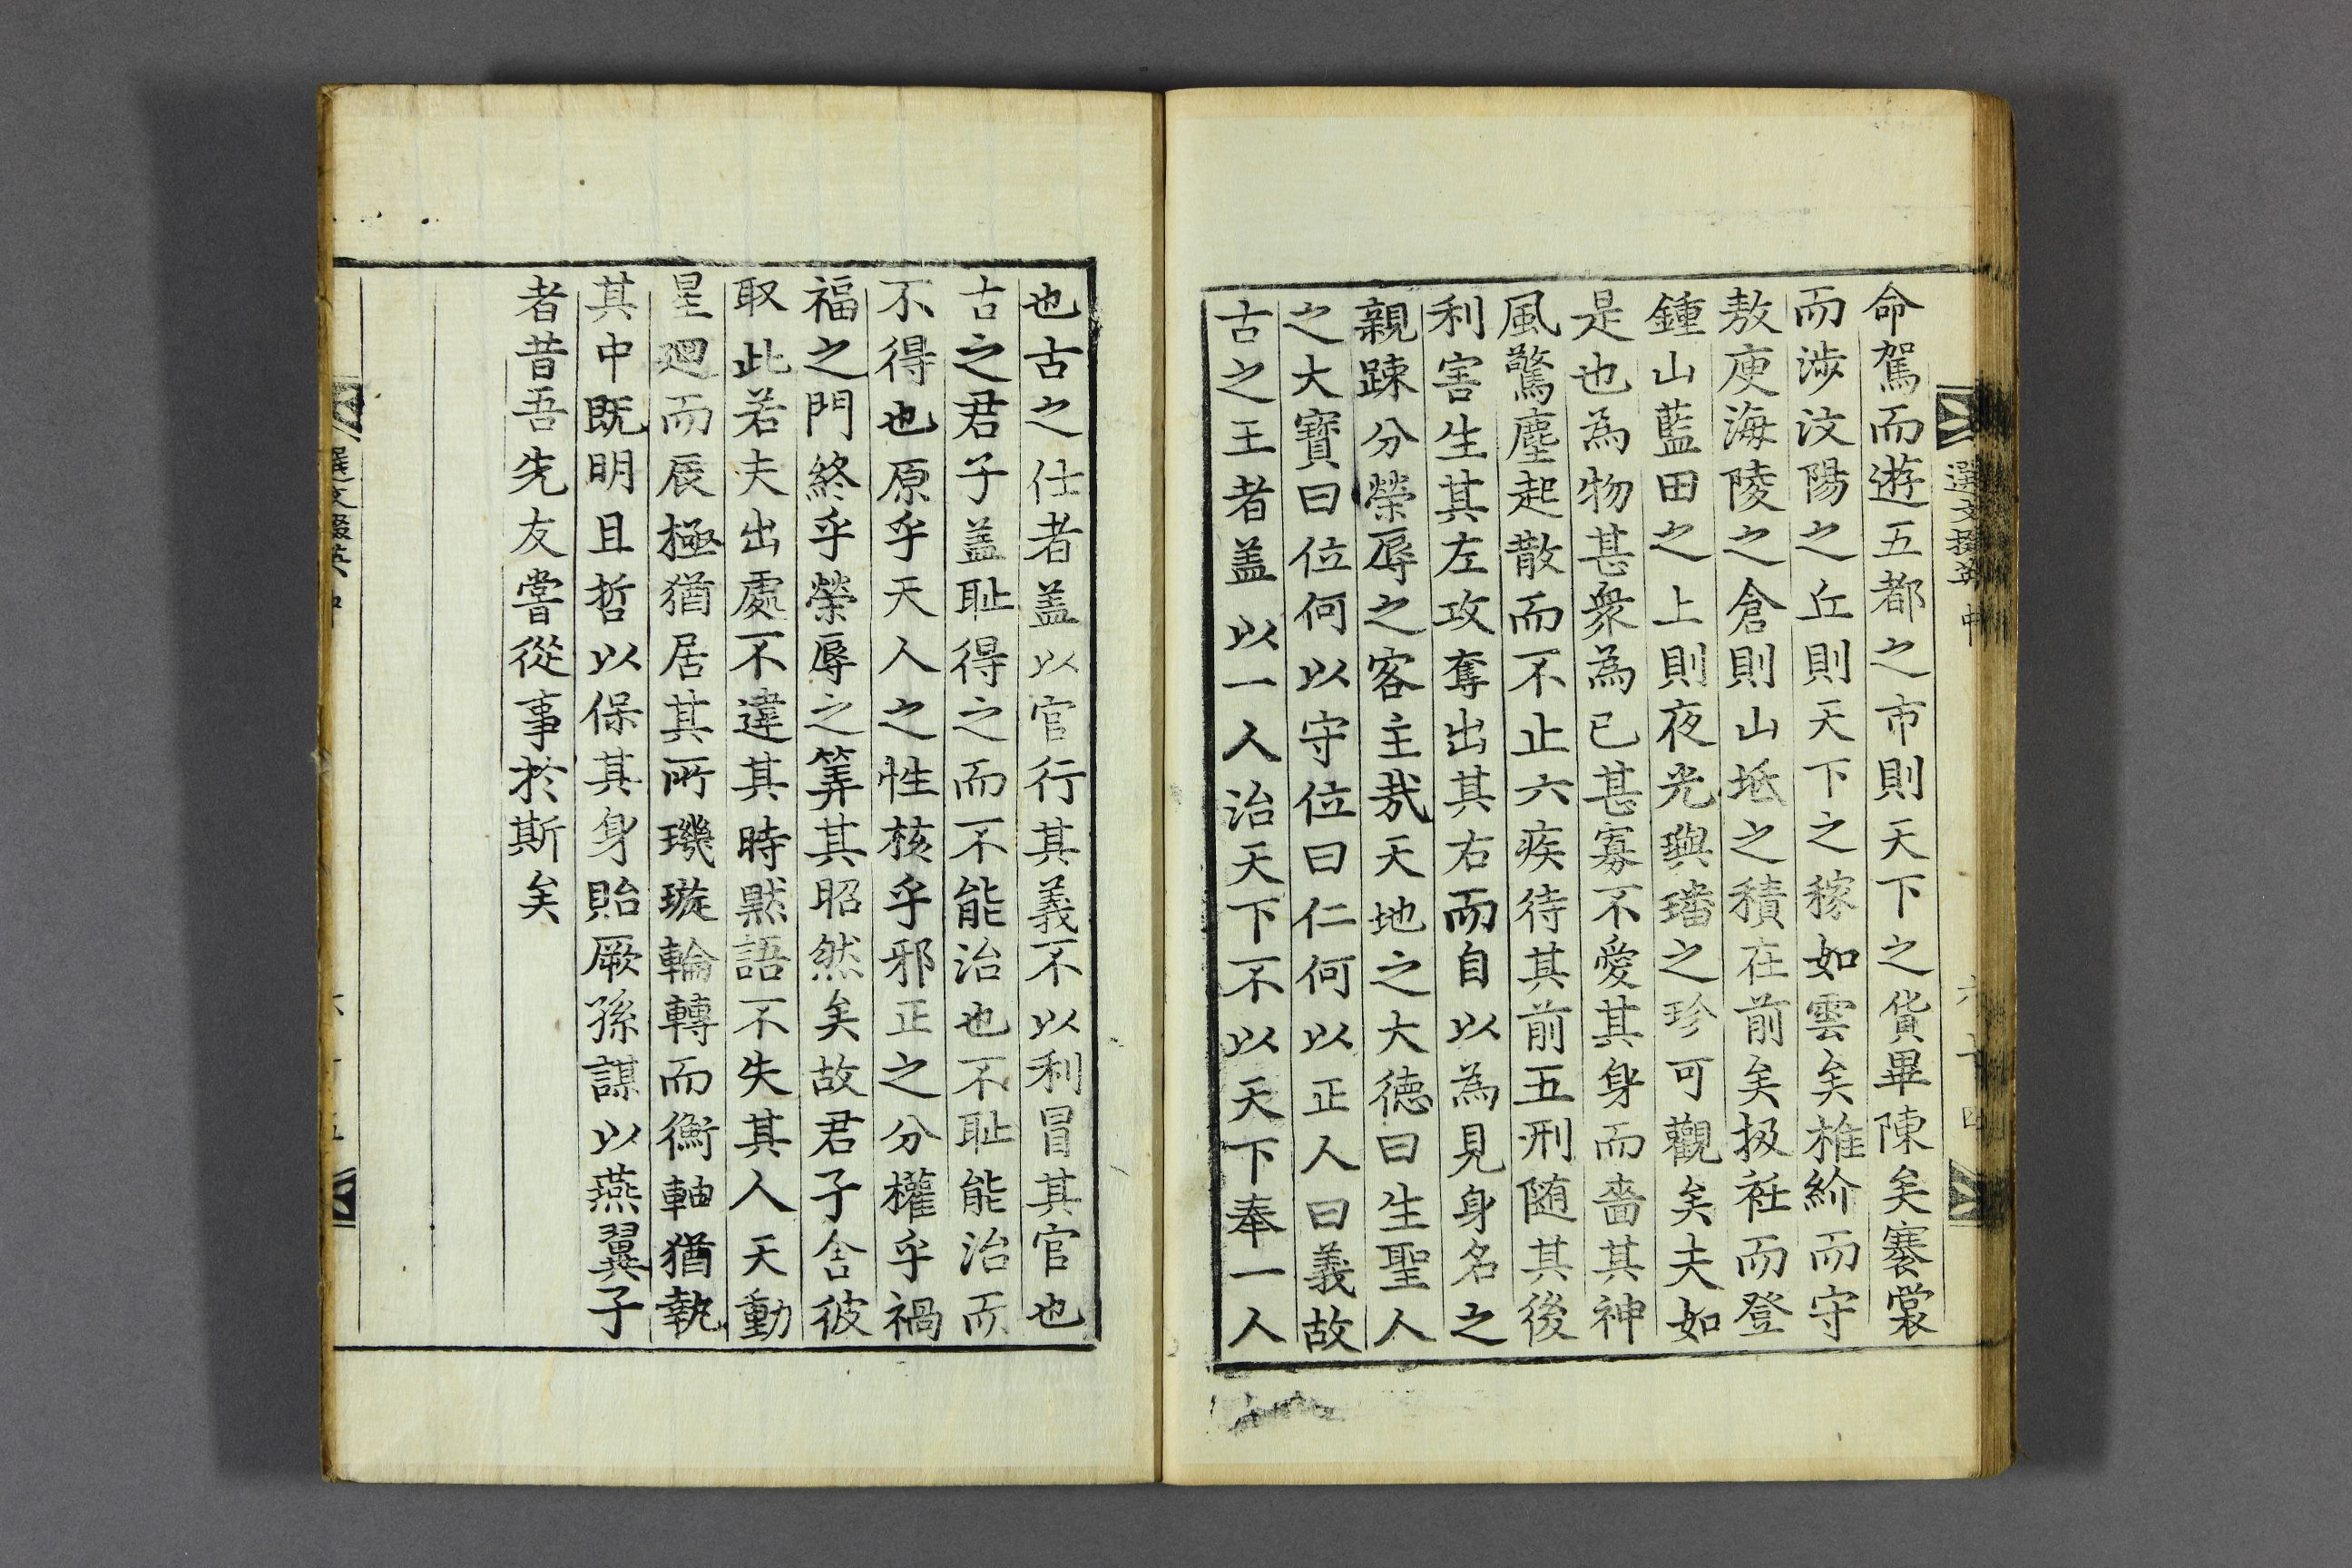 命駕而遊五都之市則天下之貨畢陳矣褰裳
而涉汶陽之丘則天下之稼如雲矣椎紒而守
敖庾海陵之倉則山坻之積在前矣扱衽而登
鍾山藍田之上則夜光璵璠之珍可觀矣夫如
是也為物甚衆為已甚寡不愛其身而嗇其神
風驚塵起散而不止六疾待其前五刑随其後
利害生其左攻奪出其右而自以為見身名之
親踈分榮辱之客主㢤天地之大德曰生聖人
之大寶曰位何以守位曰仁何以正人曰義故
古之王者盖以一人治天下不以天下奉一人
選文掇英 中
六十四
也古之仕者盖以官行其義不以利冒其官也
古之君子盖耻得之而不能治也不耻能治而
不得也原乎天人之性核乎邪正之分權乎禍
福之門終乎榮辱之筭其昭然矣故君子舍彼
取此若夫出處不違其時默語不失其人天動
星廻而辰極猶居其所璣璇輪轉而衡軸猶執
其中既明且哲以保其身貽厥孫謀以燕翼子
者昔吾先友嘗從事於斯矣
選文掇英 中